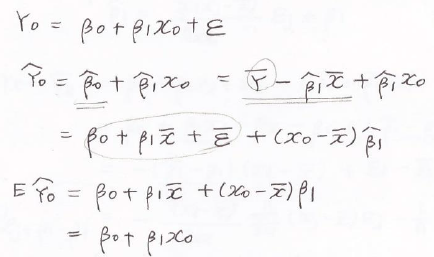 Y₀ = β₀ + β₁x₀ + ε
Ŷ₀ = β̂₀ + β̂₁x₀ = Ȳ - β̂₁x̄ + β̂₁x₀
= β₀ + β₁x̄ + ε̄ + (x₀ - x̄) β̂₁
E Ŷ₀ = β₀ + β₁x̄ + (x₀ - x̄) β₁
= β₀ + β₁x₀